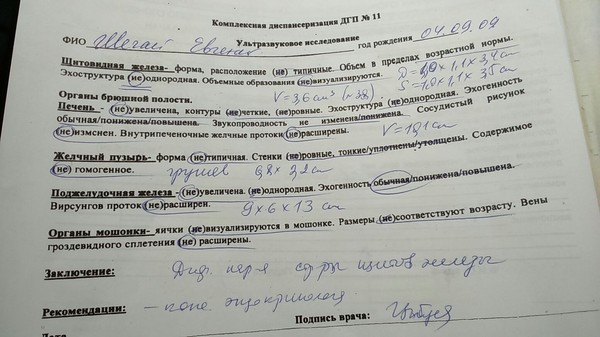 Комплексная диспансеризация ДГП № 11
Ультразвуковое исследование
ФИО Евгений год рождения 04.09.09
Щитовидная железа- форма, расположение (не) типичные. Объем в пределах возрастной нормы.
Эхоструктура (не)однородная. Объемные образования (не)визуализируются. D= 1,1x3,4 см
S=1,0x1,1x3,5 см
Органы брюшной полости. V=3,6 см³
Печень - (не)увеличена, контуры (не)четкие, (не)ровные. Эхоструктура (не)однородная. Эхогенность
обычная/понижена/повышена. Звукопроводность не изменена/понижена. Сосудистый рисунок
(не)изменен. Внутрипеченочные желчные протоки (не)расширены.
Желчный пузырь- форма (не)типичная. Стенки (не)ровные, тонкие/уплотнены/утолщены. Содержимое
(не) гомогенное.
Поджелудочная железа - (не)увеличена. (не)однородная. Эхогенность обычная/понижена/повышена.
Вирсунгов проток (не)расширен. 9x6x13 см
Органы мошонки- яички (не)визуализируются в мошонке. Размеры (не)соответствуют возрасту. Вены
гроздевидного сплетения (не) расширены.
Заключение: железы
Рекомендации: - конс эндокринолога
Подпись врача: